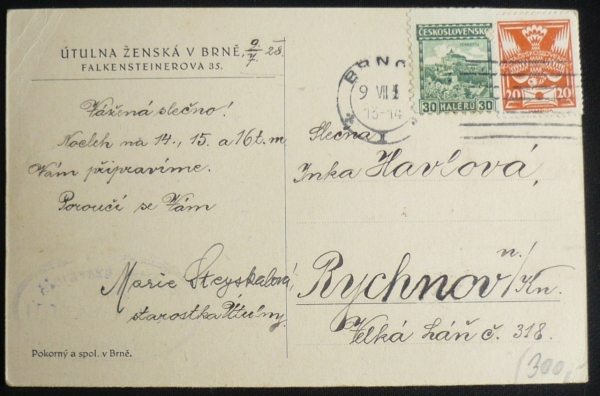 ÚTULNA ŽENSKÁ V BRNĚ, 9./7. 28.
FALKENSTEINEROVA 35.
Vážená slečno!
Nocleh na 14., 15. a 16 t. m.
Vám připravíme.
Poroučí se Vám
Marie Steyskalová,
starostka Útulny.
Pokorný a spol. v Brně.
BRNO
9 VII
13-14
ČESKOSLOVENSKO
30 HALÉŘŮ 30
20 20
Slečna
Inka Havlová,
Rychnov n./Kn.
Velká Láň č. 318.
(300,-